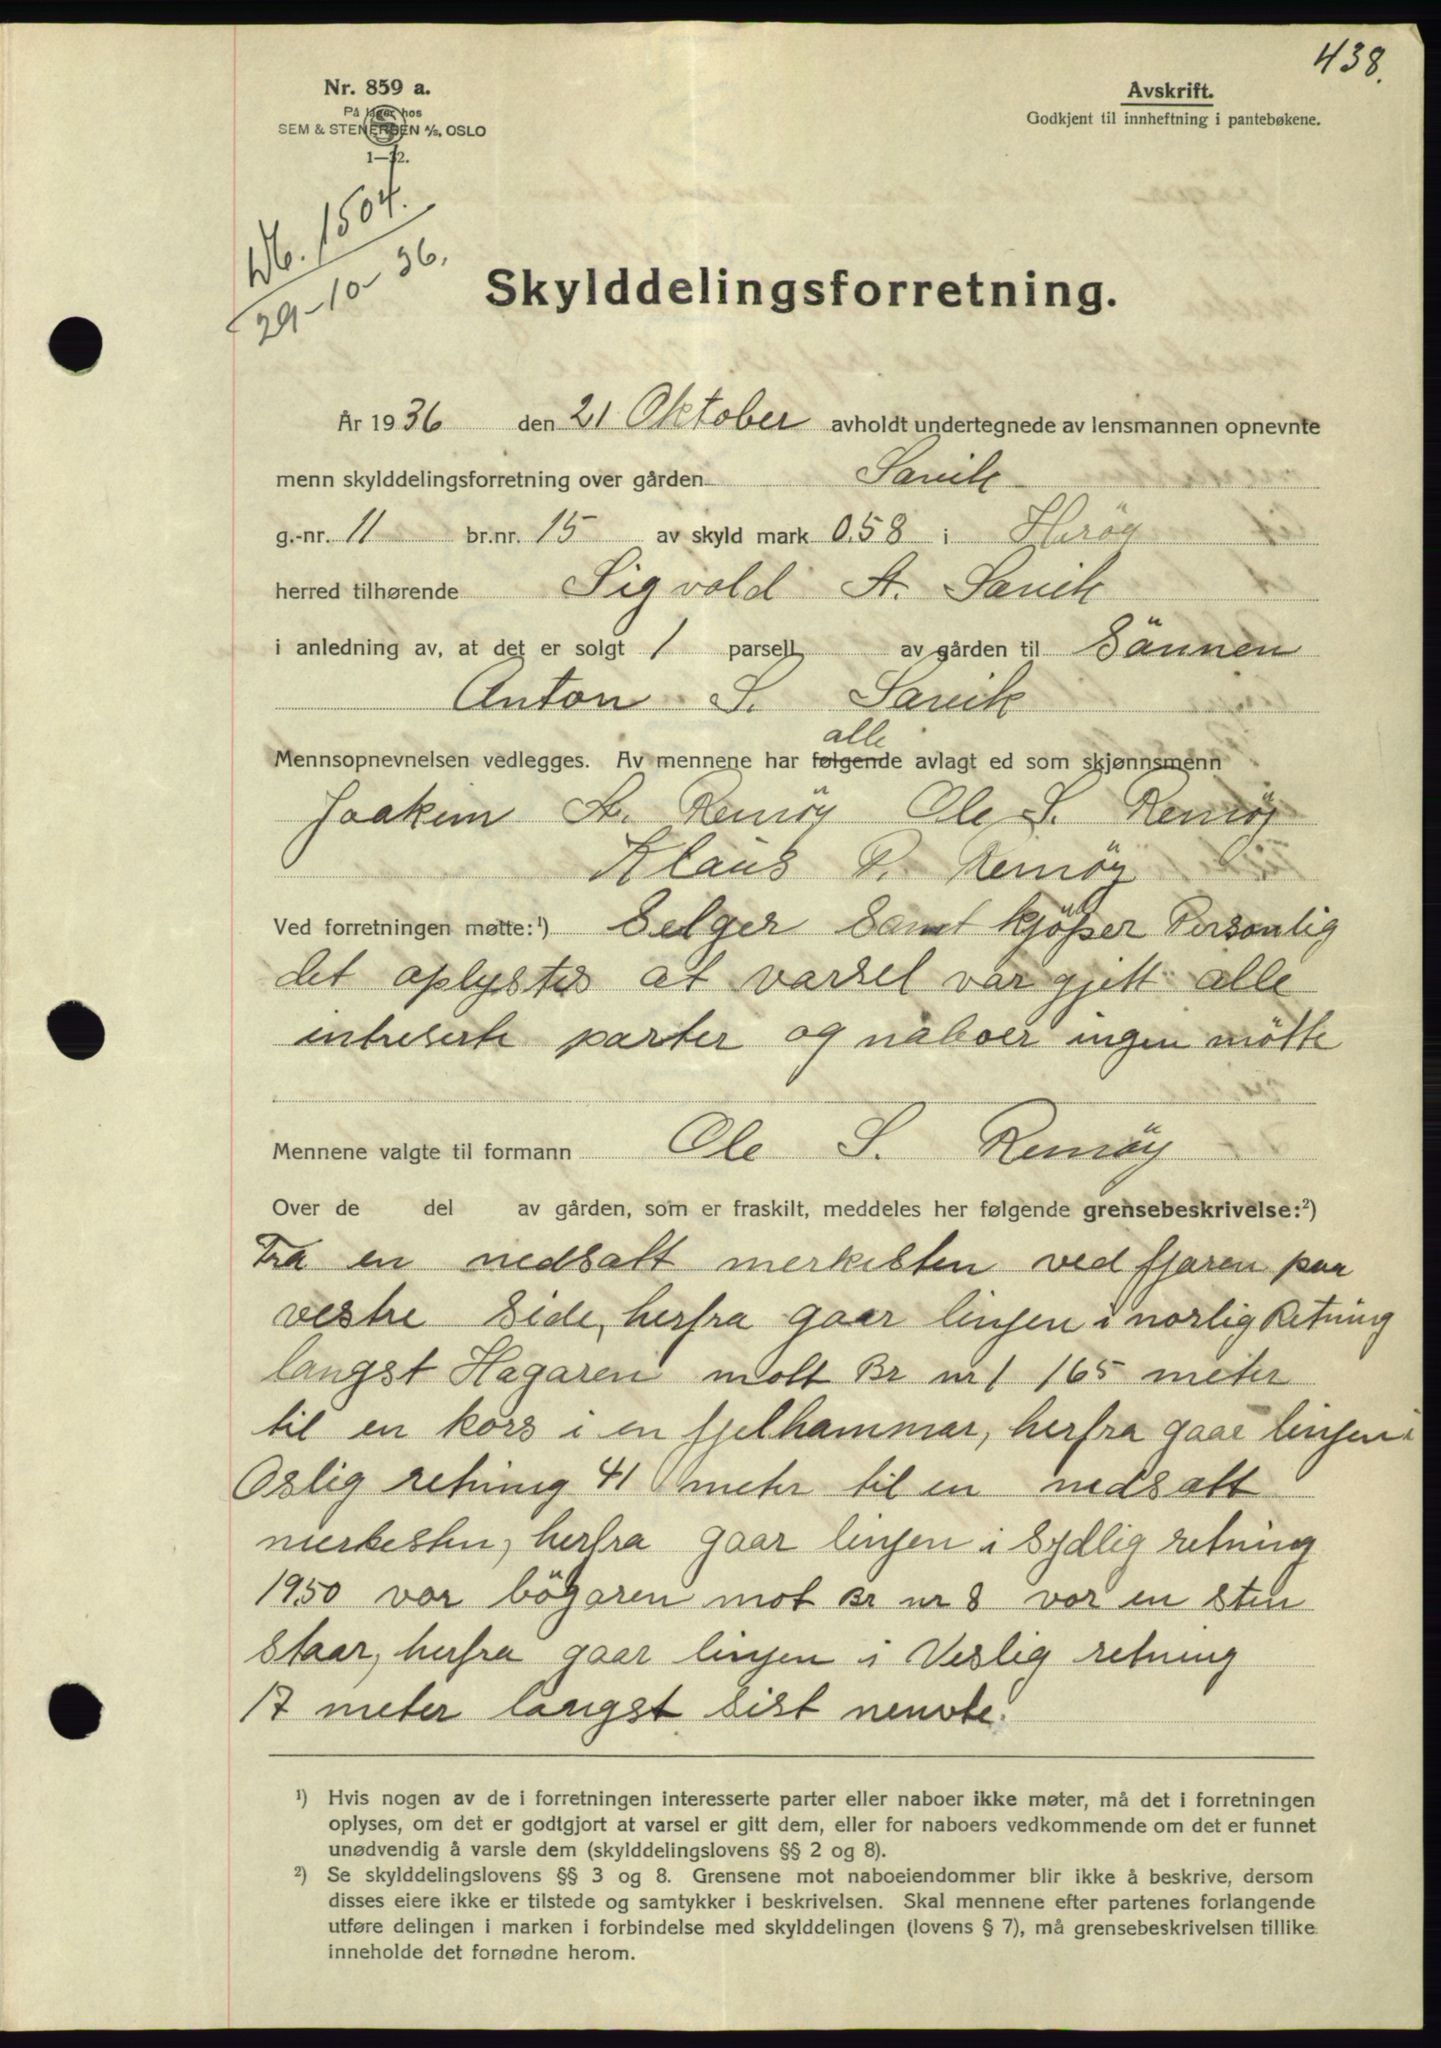 438.
Nr. 859 a.
På lager hos
SEM & STENERSEN A/S, OSLO
1—32.
Avskrift.
Godkjent til innheftning i pantebøkene.
Db. 1504.
29-10-36.
Skylddelingsforretning.
År 1936 den 21 Oktober avholdt undertegnede av lensmannen opnevnte
menn skylddelingsforretning over gården Sævik
g.-nr. 11 br.nr. 15 av skyld mark 0.58 i Herøy
herred tilhørende Sigvald A. Sævik
i anledning av, at det er solgt 1 parsell av gården til Sännen
Anton S. Sævik
alle
Mennsopnevnelsen vedlegges. Av mennene har følgende avlagt ed som skjønnsmenn
Joakim A. Remöy Ole S. Remöy
Klaus P. Remöy
Ved forretningen møtte:¹) Selger Samt kjöper Personlig
det oplystes at varsel var gjett alle
intreserte parter og naboer ingen mötte
Mennene valgte til formann Ole S. Remöy
Over de del av gården, som er fraskilt, meddeles her følgende grensebeskrivelse:²)
Fra en nedsatt merkesten ved fjæren paa
vestre Side, herfra gaar linjen i norlig Retning
langst Hagaren mott Br nr 1 165 meter
til en kors i en fjelhammar, herfra gaar linjen i
Oslig retning 41 meter til en nedsatt
merkesten, herfra gaar linjen i Sydlig retning
19.50 vor bögaren mot Br nr 8 vor en sten
staar, herfra gaar linjen i Veslig retning
17 meter langst sist nevnte.
¹) Hvis nogen av de i forretningen interesserte parter eller naboer ikke møter, må det i forretningen
oplyses, om det er godtgjort at varsel er gitt dem, eller for naboers vedkommende om det er funnet
unødvendig å varsle dem (skylddelingslovens §§ 2 og 8).
²) Se skylddelingslovens §§ 3 og 8. Grensene mot naboeiendommer blir ikke å beskrive, dersom
disses eiere ikke er tilstede og samtykker i beskrivelsen. Skal mennene efter partenes forlangende
utføre delingen i marken i forbindelse med skylddelingen (lovens § 7), må grensebeskrivelsen tillike
inneholde det fornødne herom.